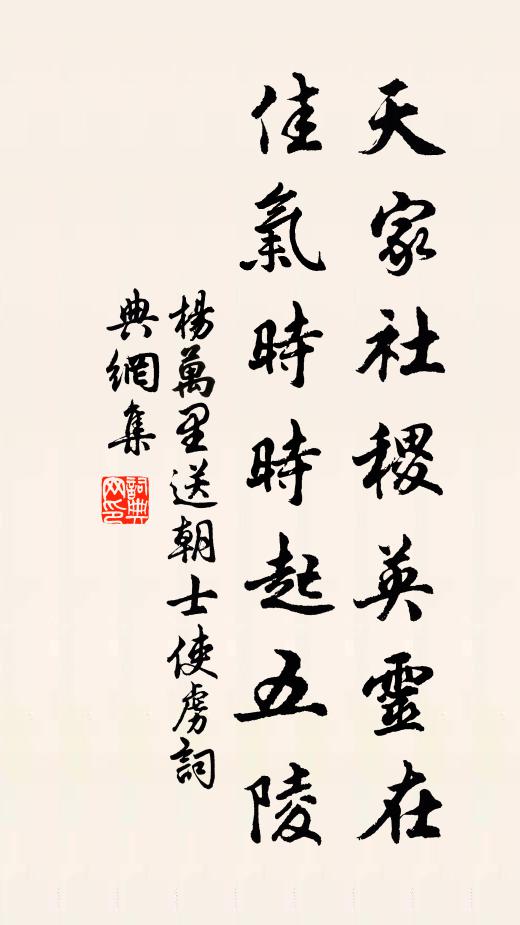 天家社稷英靈在
佳氣時時起五陵
楊萬里送朝士使虜詞
典網集
詞典网印